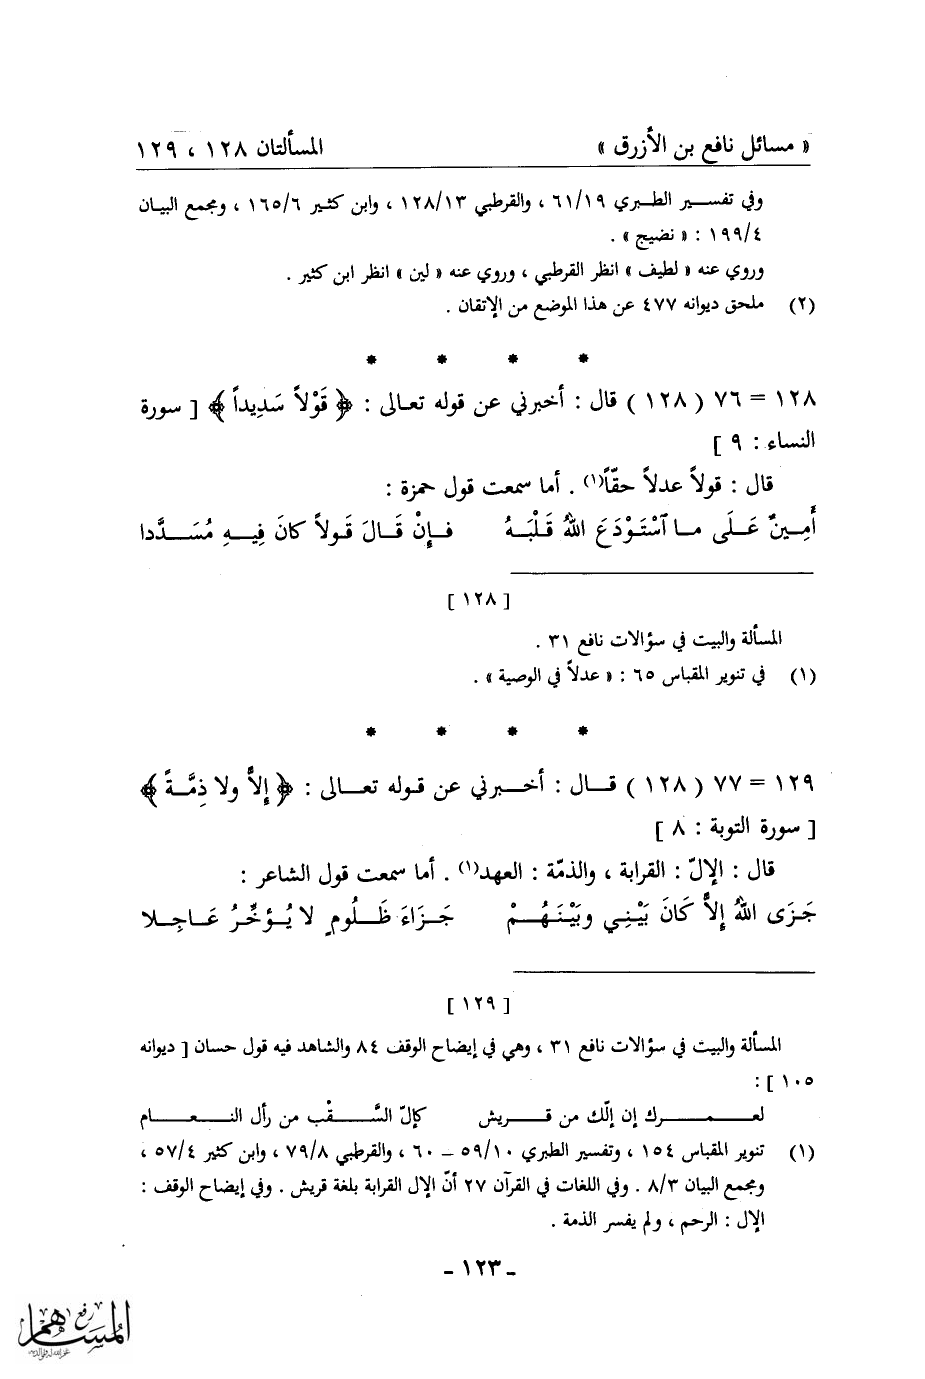 « مسائل نافع بن الأزرق » المسألتان ١٢٨ ، ١٢٩
وفي تفسـير الطـبري ٦١/١٩ ، والقرطبي ١٢٨/١٣ ، وابن كثير ١٦٥/٦ ، ومجمع البيان
١٩٩/٤ : « نضيج » .
وروي عنه « لطيف » انظر القرطبي ، وروي عنه « لين » انظر ابن كثير .
(٢) ملحق ديوانه ٤٧٧ عن هذا الموضع من الإتقان .
* * * *
١٢٨ = ٧٦ ( ١٢٨ ) قال : أخبرني عن قوله تعالى : ﴿ قَوْلاً سَدِيداً ﴾ [ سورة
النساء : ٩ ]
قال : قولاً عدلاً حقّاً(١) . أما سمعت قول حمزة :
أَمِـينٌ عَلَى مـا اَسْتَوْدَعَ اللهُ قَلْبَـهُ فـإِنْ قَـالَ قَـولاً كانَ فِيـهِ مُسَـدَّدا
[ ١٢٨ ]
المسألة والبيت في سؤالات نافع ٣١ .
(١) في تنوير المقباس ٦٥ : « عدلاً في الوصية » .
* * * *
١٢٩ = ٧٧ ( ١٢٨ ) قـال : أخـبرني عن قـوله تعـالى : ﴿ إِلاًّ ولا ذِمَّـةً ﴾
[ سورة التوبة : ٨ ]
قال : الإلّ : القرابة ، والذمّة : العهد(١) . أما سمعت قول الشاعر :
جَـزَى اللهُ إِلاًّ كَانَ بَيْـنِـي وبَيْنَـهُـمْ جَـزَاءَ ظَـلُـومٍ لا يُـؤخِّـرُ عَـاجِـلا
[ ١٢٩ ]
المسألة والبيت في سؤالات نافع ٣١ ، وهي في إيضاح الوقف ٨٤ والشاهد فيه قول حسان [ ديوانه
١٠٥ ] :
لعـمـرك إن إلّك من قـريش كإلّ السَّـقْب من رأل النـعـام
(١) تنوير المقباس ١٥٤ ، وتفسير الطبري ٥٩/١٠ ـ ٦٠ ، والقرطبي ٧٩/٨ ، وابن كثير ٥٧/٤ ،
ومجمع البيان ٨/٣ . وفي اللغات في القرآن ٢٧ أنّ الإل القرابة بلغة قريش . وفي إيضاح الوقف :
الإل : الرحم ، ولم يفسر الذمة .
ـ ١٢٣ ـ
رفع
المساهم